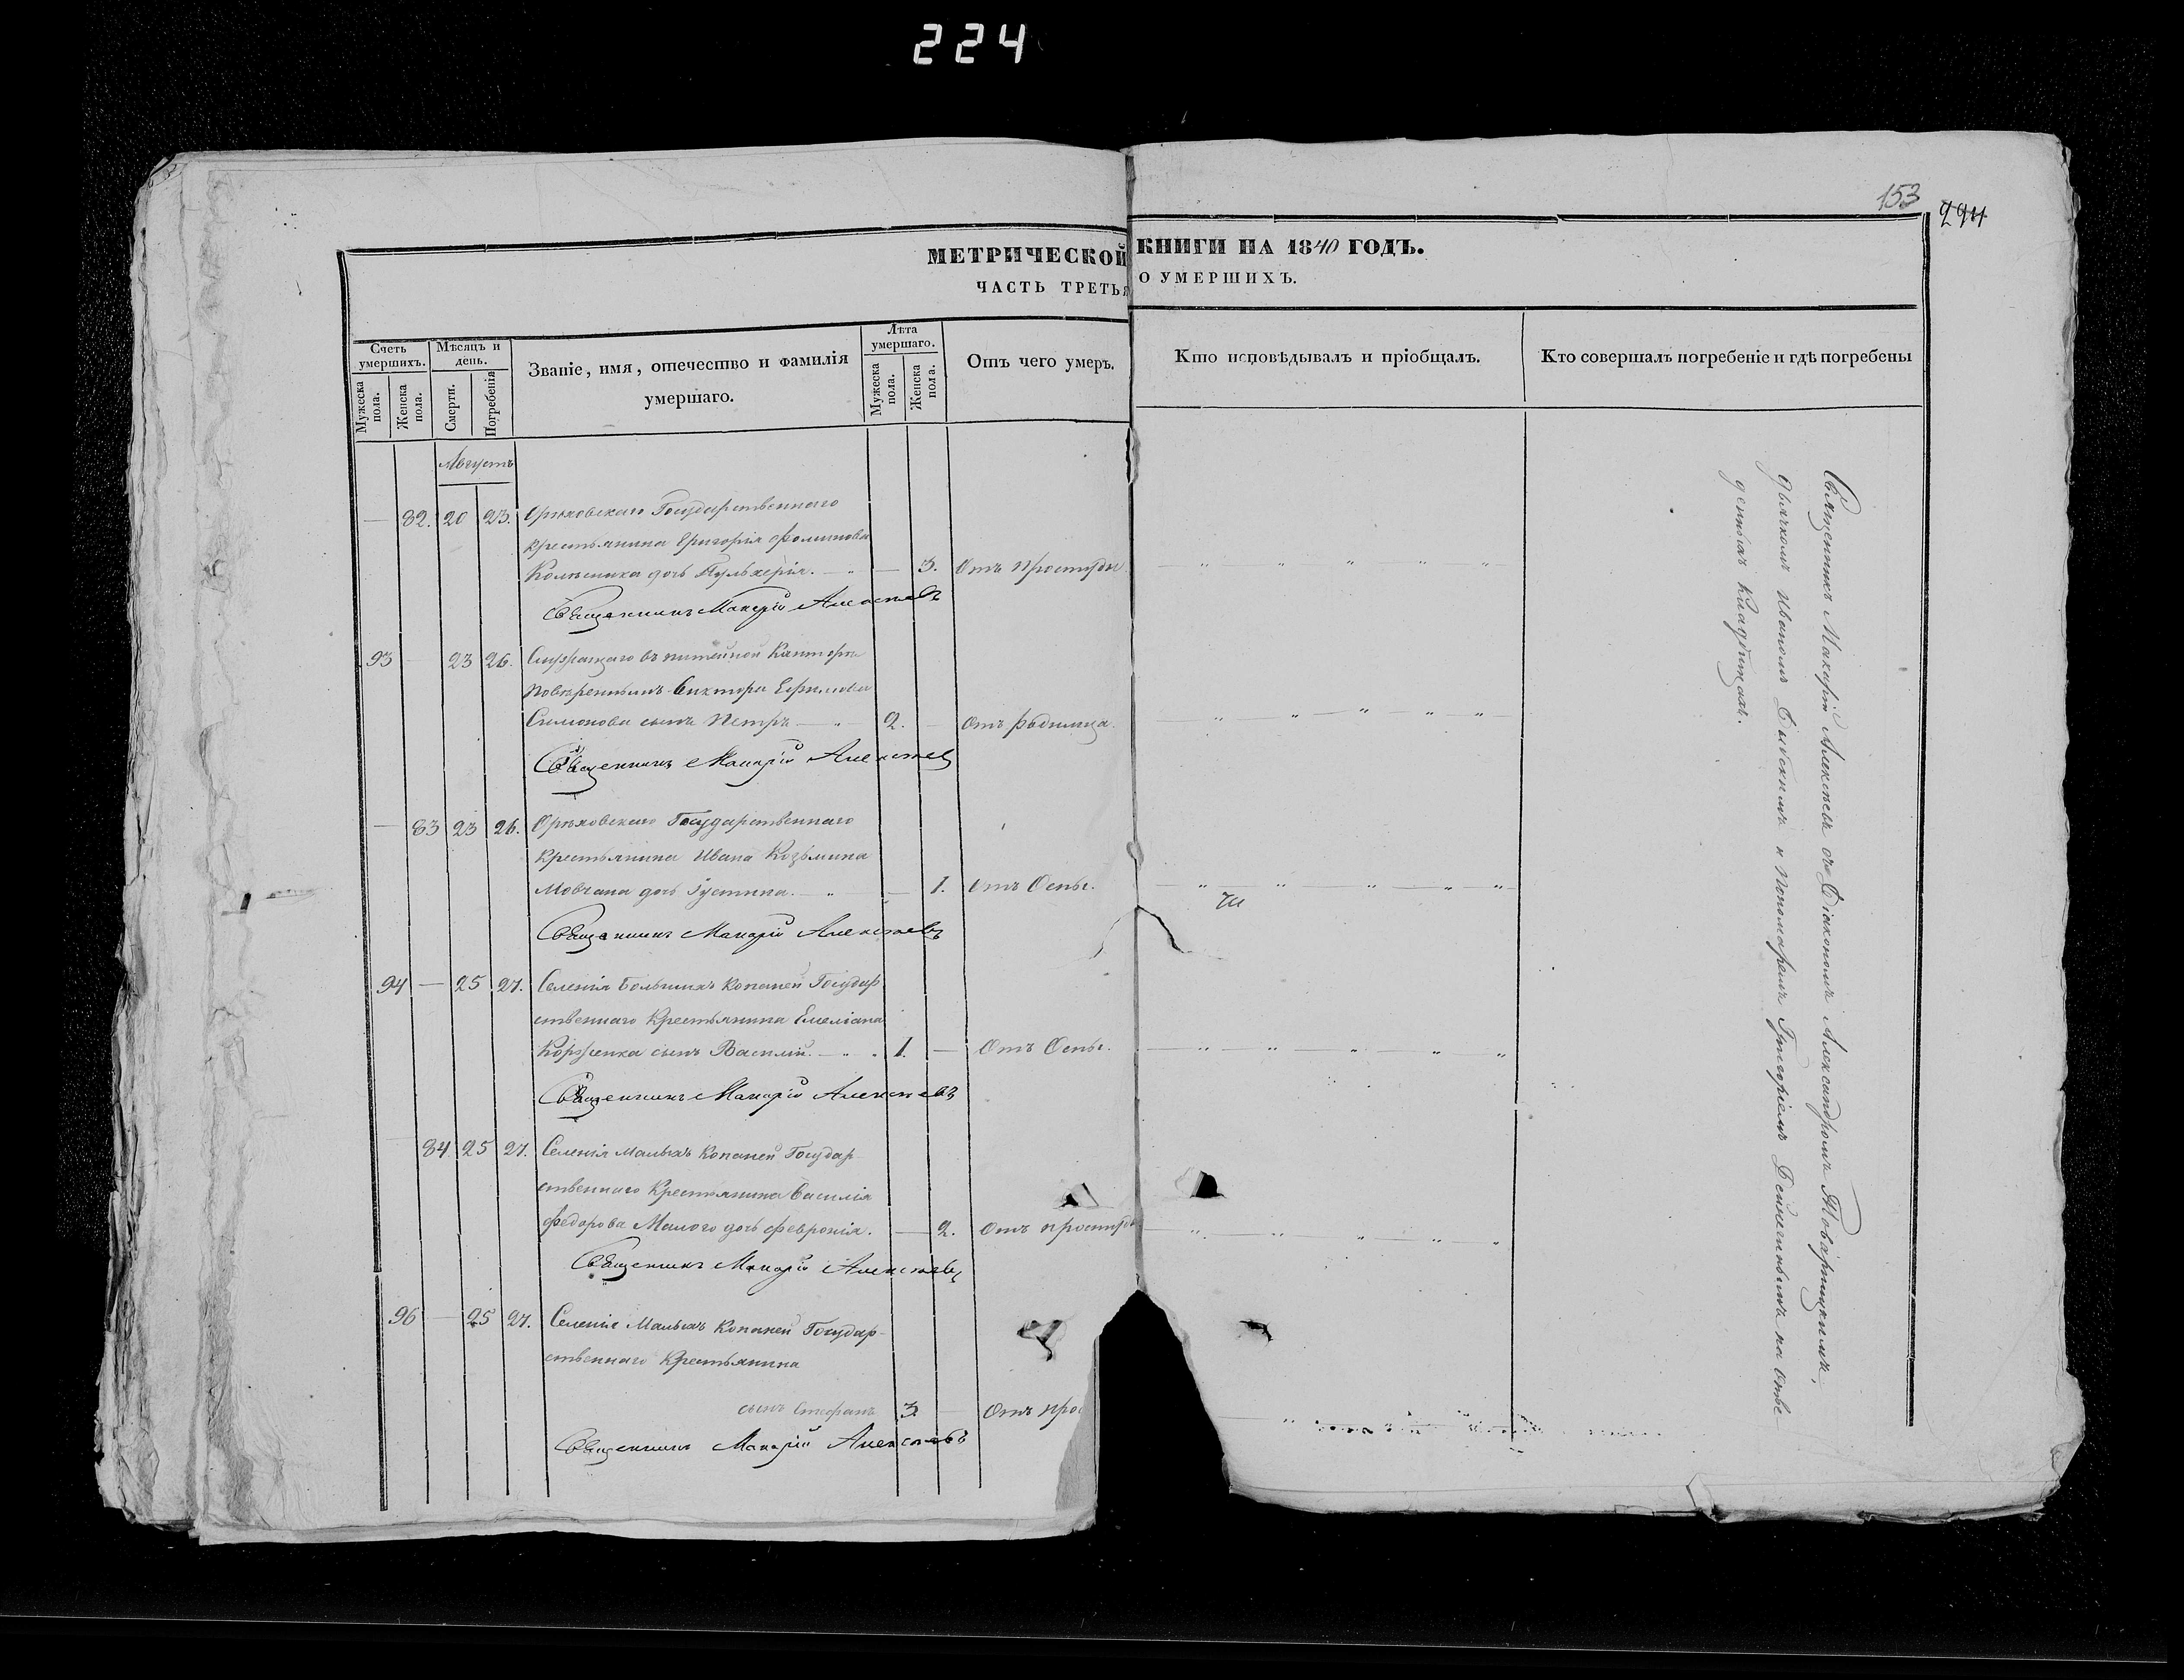 224
153
224
МЕТРИЧЕСКОЙ КНИГИ НА 1840 ГОДЪ.
ЧАСТЬ ТРЕТЬЯ О УМЕРШИХЪ.
Счетъ умершихъ.
Мужеска пола.
Женска пола.
Мѣсяцъ и день.
Смерти.
Погребенія
Званіе, имя, отечество и фамилія
умершаго.
Лѣта умершаго.
Мужеска пола.
Женска пола.
Отъ чего умеръ.
Кто исповѣдывалъ и пріобщалъ.
Кто совершалъ погребеніе и гдѣ погребены
Августъ
— 82. 20 23. Орѣховскаго Государственнаго
крестьянина Григорія Фоминова
Колѣсника дочь Пульхерія. — 3. Отъ простуды.
Священникъ Макарій Алексѣевъ
93 — 23 26. Служащаго въ питейной Канторѣ
повѣреннымъ Виктора Ефимова
Симонова сынъ Петръ — 2. — Отъ родимца.
Священникъ Макарій Алексѣевъ
— 83 23 26. Орѣховскаго Государственнаго
крестьянина Ивана Козьмина
Мовчана дочь Іустина. — 1. отъ Оспы.
Священникъ Макарій Алексѣевъ
94 — 25 27. Селенія Большихъ Копаней Государ
ственнаго Крестьянина Емеліана
Корженка сынъ Василій. — 1. — Отъ Оспы.
Священникъ Макарій Алексѣевъ
84. 25 27. Селенія Малыхъ Копаней Государ-
ственнаго Крестьянина Василія
Федорова Малого дочь Февронія. — 2. Отъ простуды
Священникъ Макарій Алексѣевъ
96 — 25 27. Селенія Малыхъ Копаней Государ-
ственнаго Крестьянина
сынъ Стефанъ 3. — Отъ прос
Священникъ Макарій Алексѣевъ
Священникъ Макарій Алексѣевъ съ Діакономъ Александромъ Товарницкимъ,
дьячкомъ Иваномъ и Пономаремъ Григоріемъ на отве
денныхъ Кладбищахъ.